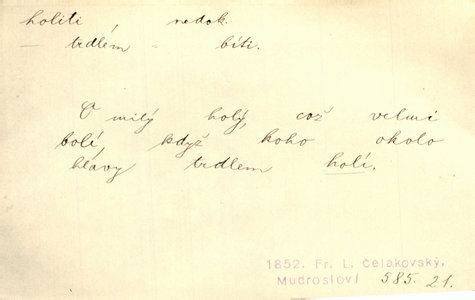 holiti nedok.
— trdlem = bíti.
O milý holý, což velmi
bolí, když koho okolo
hlavy trdlem holí.
1852. Fr. L. Čelakovský,
Mudrosloví 585. 21.